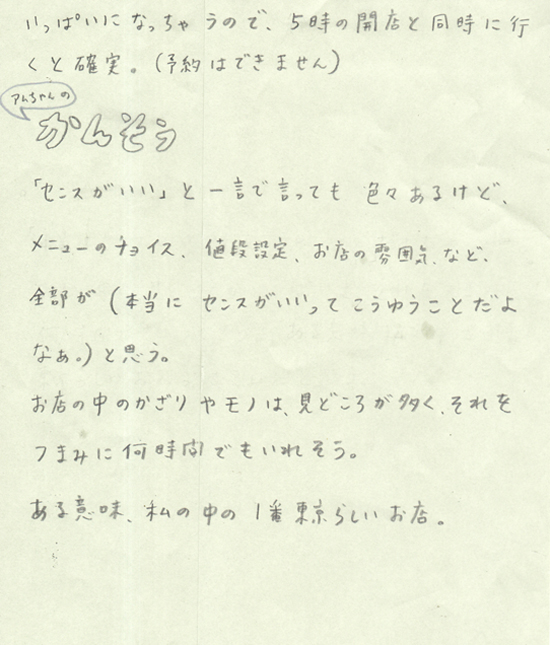 いっぱいになっちゃうので、5時の開店と同時に行
くと確実。(予約はできません)
アムちゃんの
かんそう
「センスがいい」と一言で言っても色々あるけど、
メニューのチョイス、値段設定、お店の雰囲気、など、
全部が(本当にセンスがいいってこうゆうことだよ
なぁ。)と思う。
お店の中のかざりやモノは、見どころが多く、それを
つまみに何時間でもいれそう。
ある意味、私の中の1番東京らしいお店。